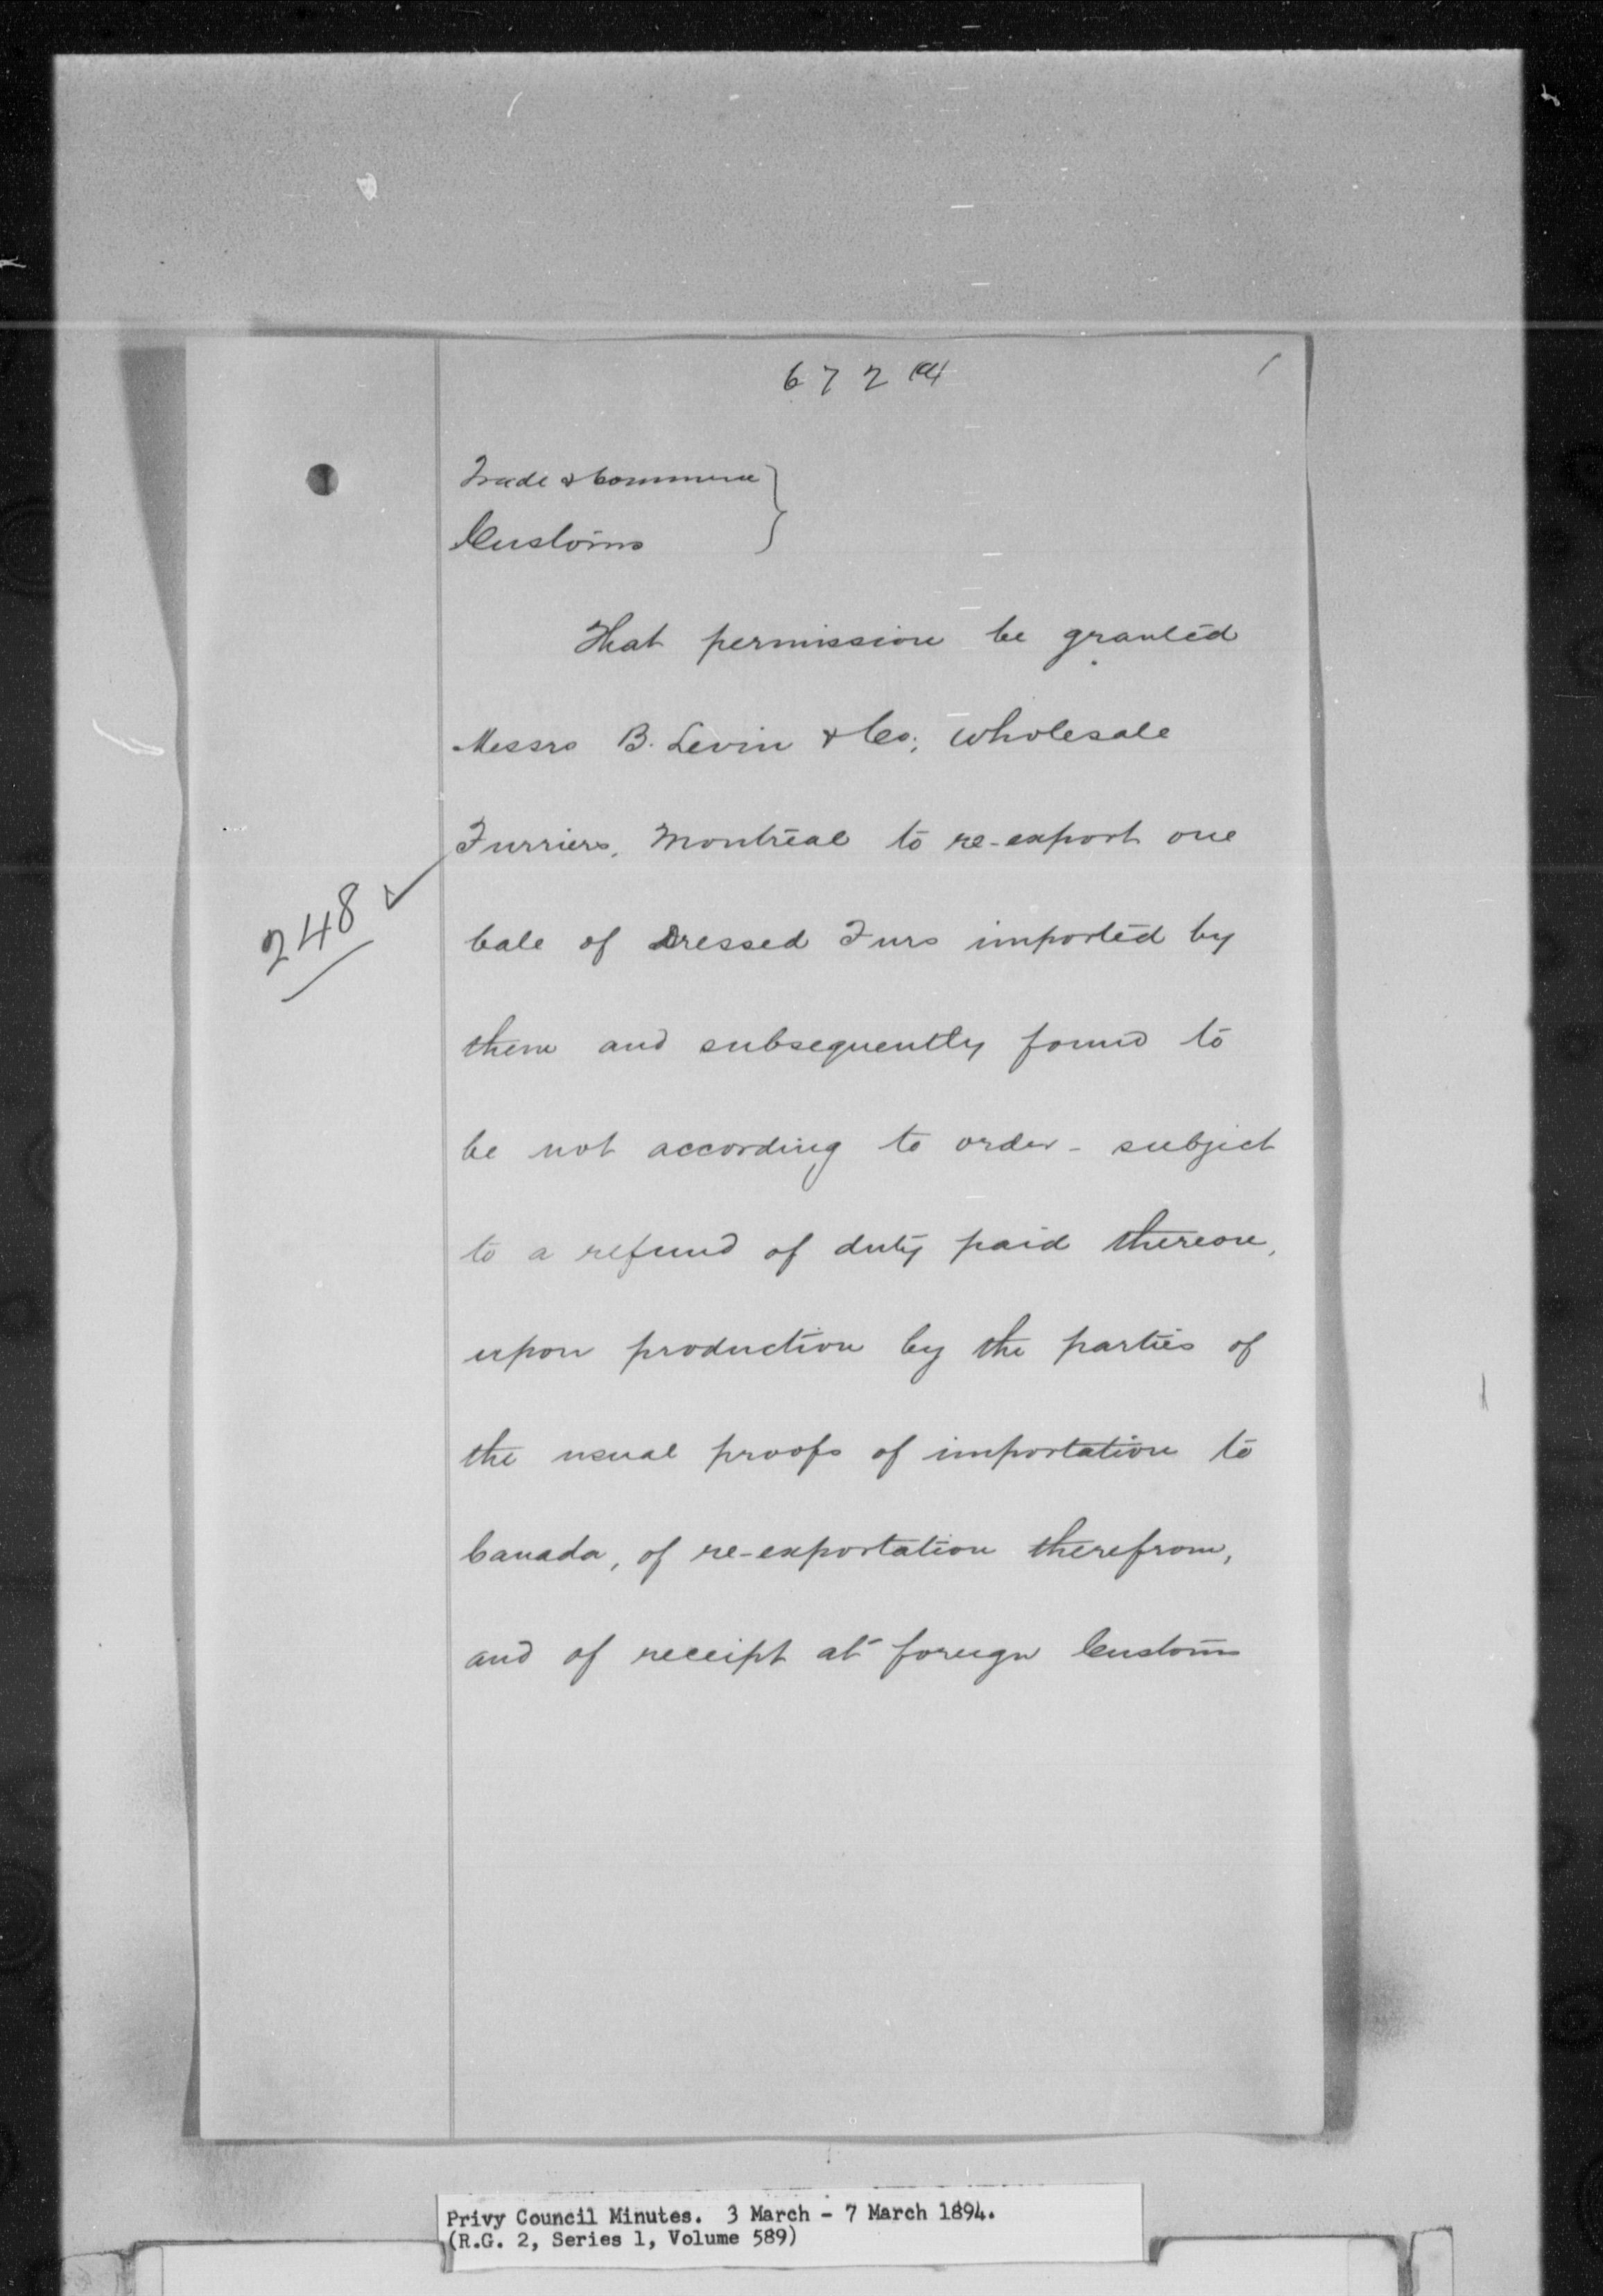 672 (a)
Trade & Commerce
Customs
That permission be granted
Messrs B. Levin & Co; wholesale
Furriers, Montreal to re-export one
248
bale of Dressed Furs imported by
them and subsequently found to
be not according to order - subject
to a refund of duty paid thereon,
upon production by the parties of
the usual proofs of importation to
Canada, of re-exportation therefrom,
and of receipt at foreign Customs
Privy Council Minutes. 3 March - 7 March 1894.
(R.G. 2, Series 1, Volume 589)